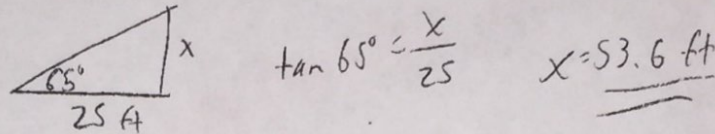 65°
x
25 ft
tan 65° = x/25
x = 53.6 ft